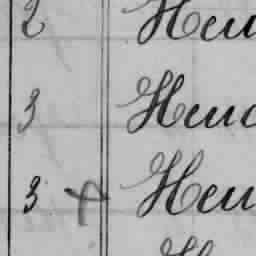 2 Hen
3 Hend
3 x Hen